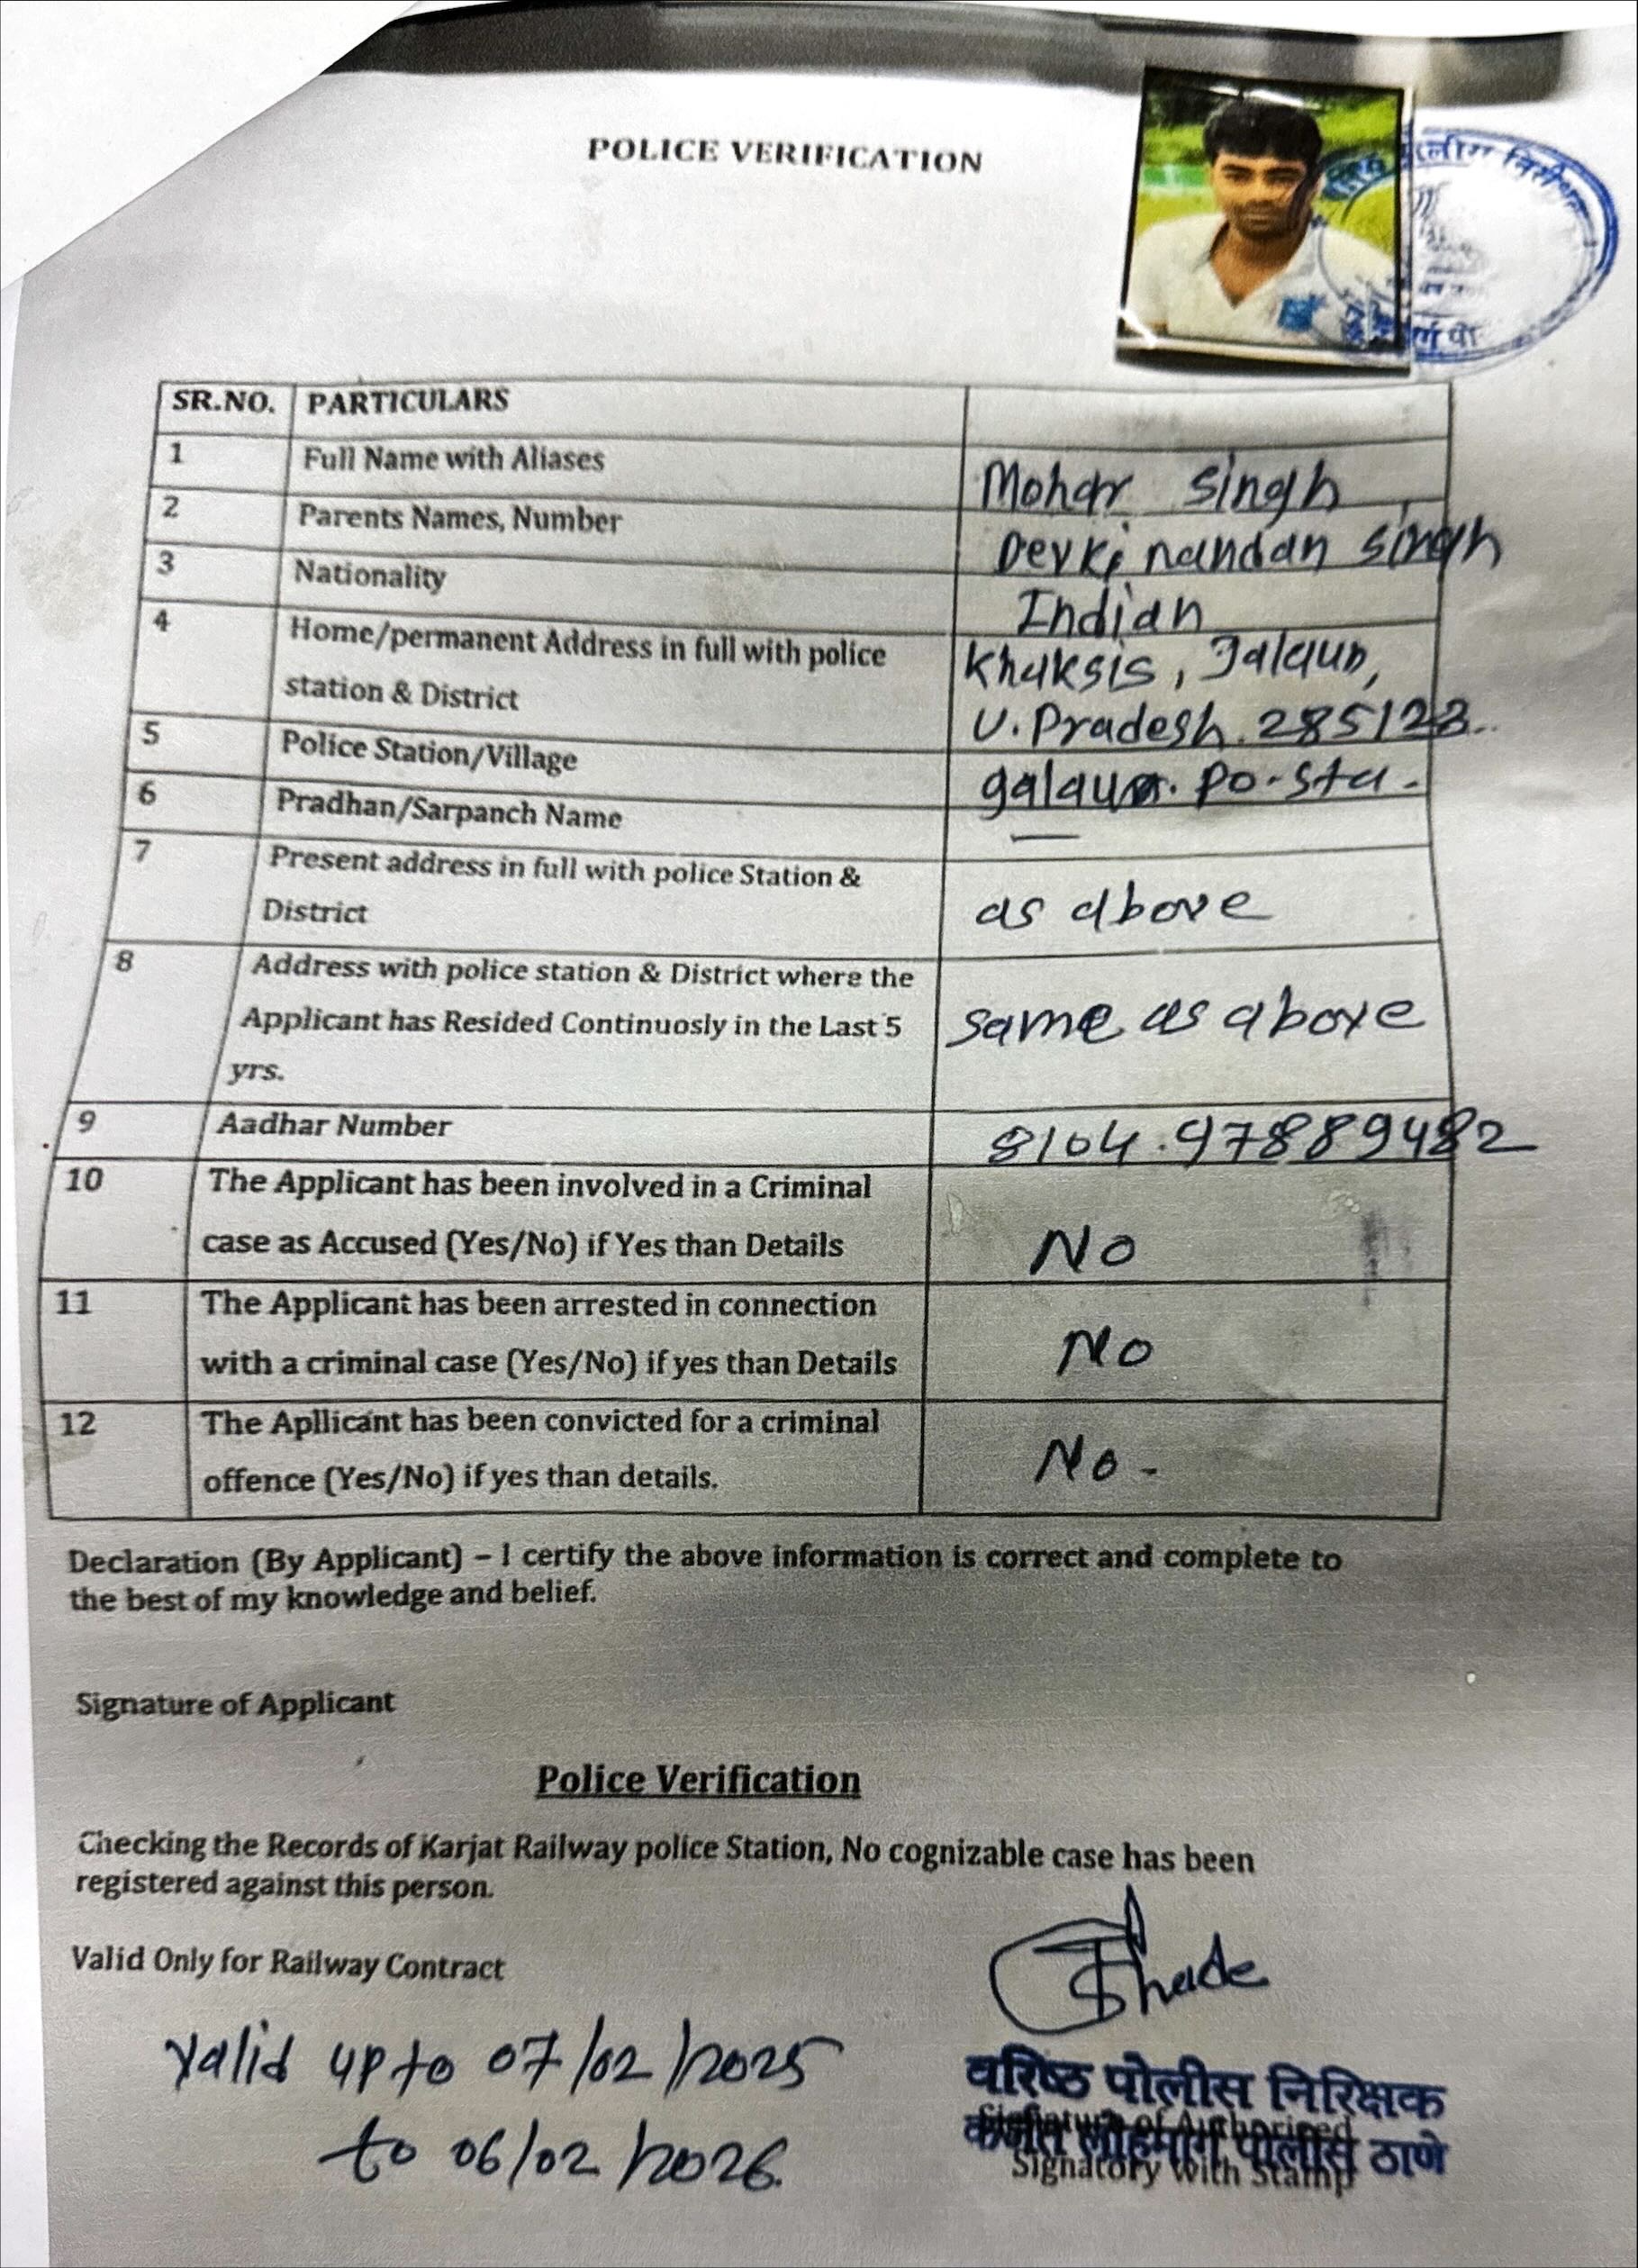 POLICE VERIFICATION
पोलीस निरीक्षक
SR.NO. PARTICULARS
1 Full Name with Aliases Mohar Singh
2 Parents Names, Number Devki nandan singh
3 Nationality Indian
4 Home/permanent Address in full with police Khaksis, Jalaun,
station & District U. Pradesh. 285123..
5 Police Station/Village galaun. po. sta.
6 Pradhan/Sarpanch Name —
7 Present address in full with police Station &
District as above
8 Address with police station & District where the
Applicant has Resided Continuosly in the Last 5 same as above
yrs.
9 Aadhar Number 8104.97889482
10 The Applicant has been involved in a Criminal
case as Accused (Yes/No) if Yes than Details No
11 The Applicant has been arrested in connection
with a criminal case (Yes/No) if yes than Details No
12 The Apllicant has been convicted for a criminal
offence (Yes/No) if yes than details. No -
Declaration (By Applicant) – I certify the above information is correct and complete to
the best of my knowledge and belief.
Signature of Applicant
Police Verification
Checking the Records of Karjat Railway police Station, No cognizable case has been
registered against this person.
Valid Only for Railway Contract
valid up to 07/02/2025
to 06/02/2026.
वरिष्ठ पोलीस निरिक्षक
Signature of Authorized
कर्जत लोहमार्ग पोलीस ठाणे
Signatory With Stamp